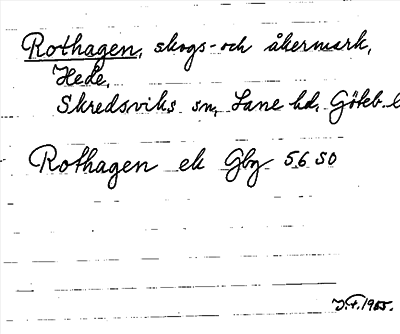 Rothagen, skogs- och åkermark,
Hede,
Skredsviks sn, Lane hd, Göteb. l
Rothagen ek Gbg 5650
J.t. 1955.